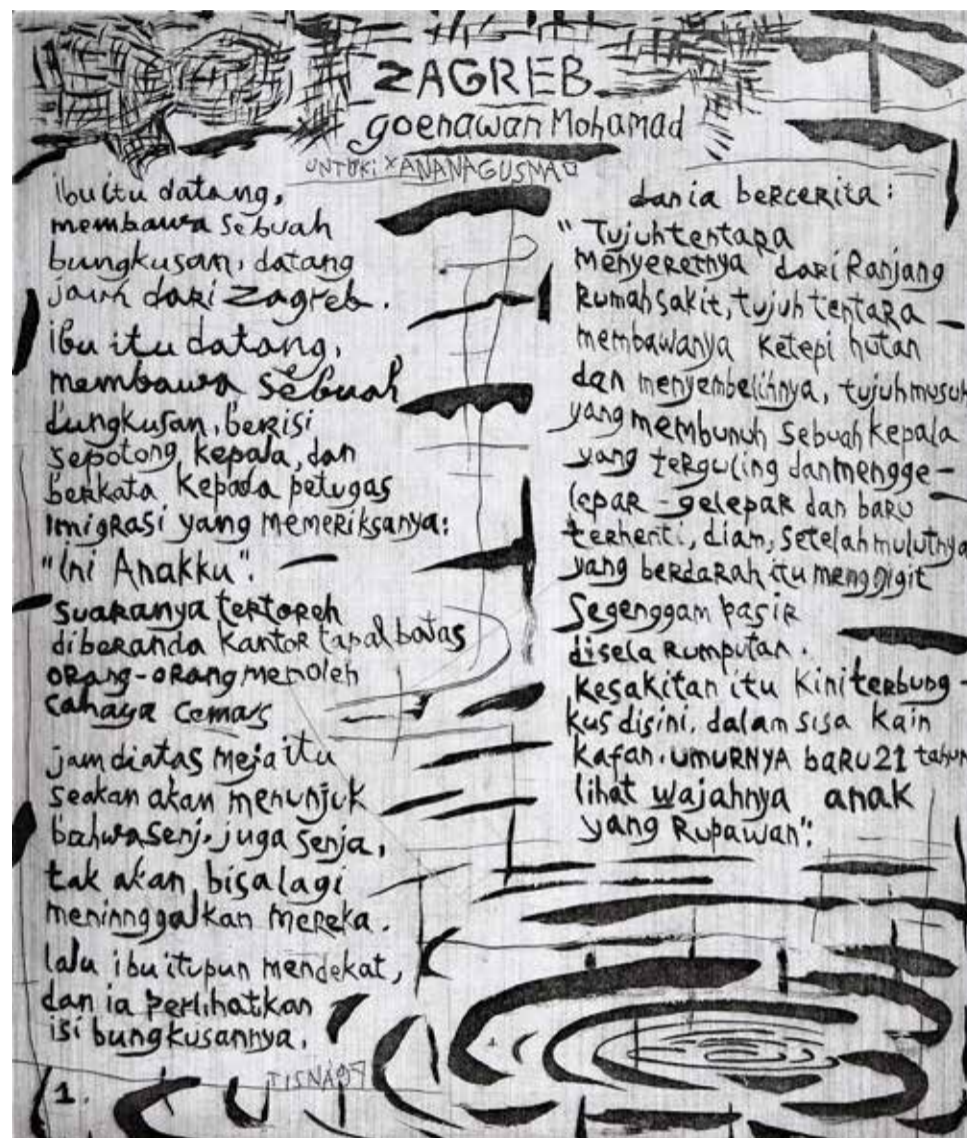 ZAGREB
goenawan Mohamad
UNTUKi XANANAGUSMAO
ibu itu datang,
membawa sebuah
bungkusan, datang
jauh dari Zagreb.
ibu itu datang,
membawa sebuah
bungkusan, berisi
sepotong kepala, dan
berkata kepada petugas
imigrasi yang memeriksanya:
"Ini Anakku".
suaranya tertoreh
diberanda kantor tapal batas
orang-orang menoleh
cahaya cemas
jam diatas meja itu
seakan akan menunjuk
bahwa senj. juga senja,
tak akan bisa lagi
meninnggalkan mereka.
lalu ibu itupun mendekat,
dan ia perlihatkan
isi bungkusannya.
TISNA97
1.
dan ia bercerita:
"Tujuh tentara
menyeretnya dari Ranjang
Rumah sakit, tujuh tentara
membawanya ketepi hutan
dan menyembelihnya, tujuh musuh
yang membunuh sebuah kepala
yang terguling dan mengge-
lepar-gelepar dan baru
terhenti, diam, setelah mulutnya
yang berdarah itu menggigit
segenggam pasir
disela rumputan.
kesakitan itu kini terbung-
kus disini, dalam sisa kain
kafan. UMURNYA baru 21 tahun
lihat wajahnya anak
yang Rupawan".